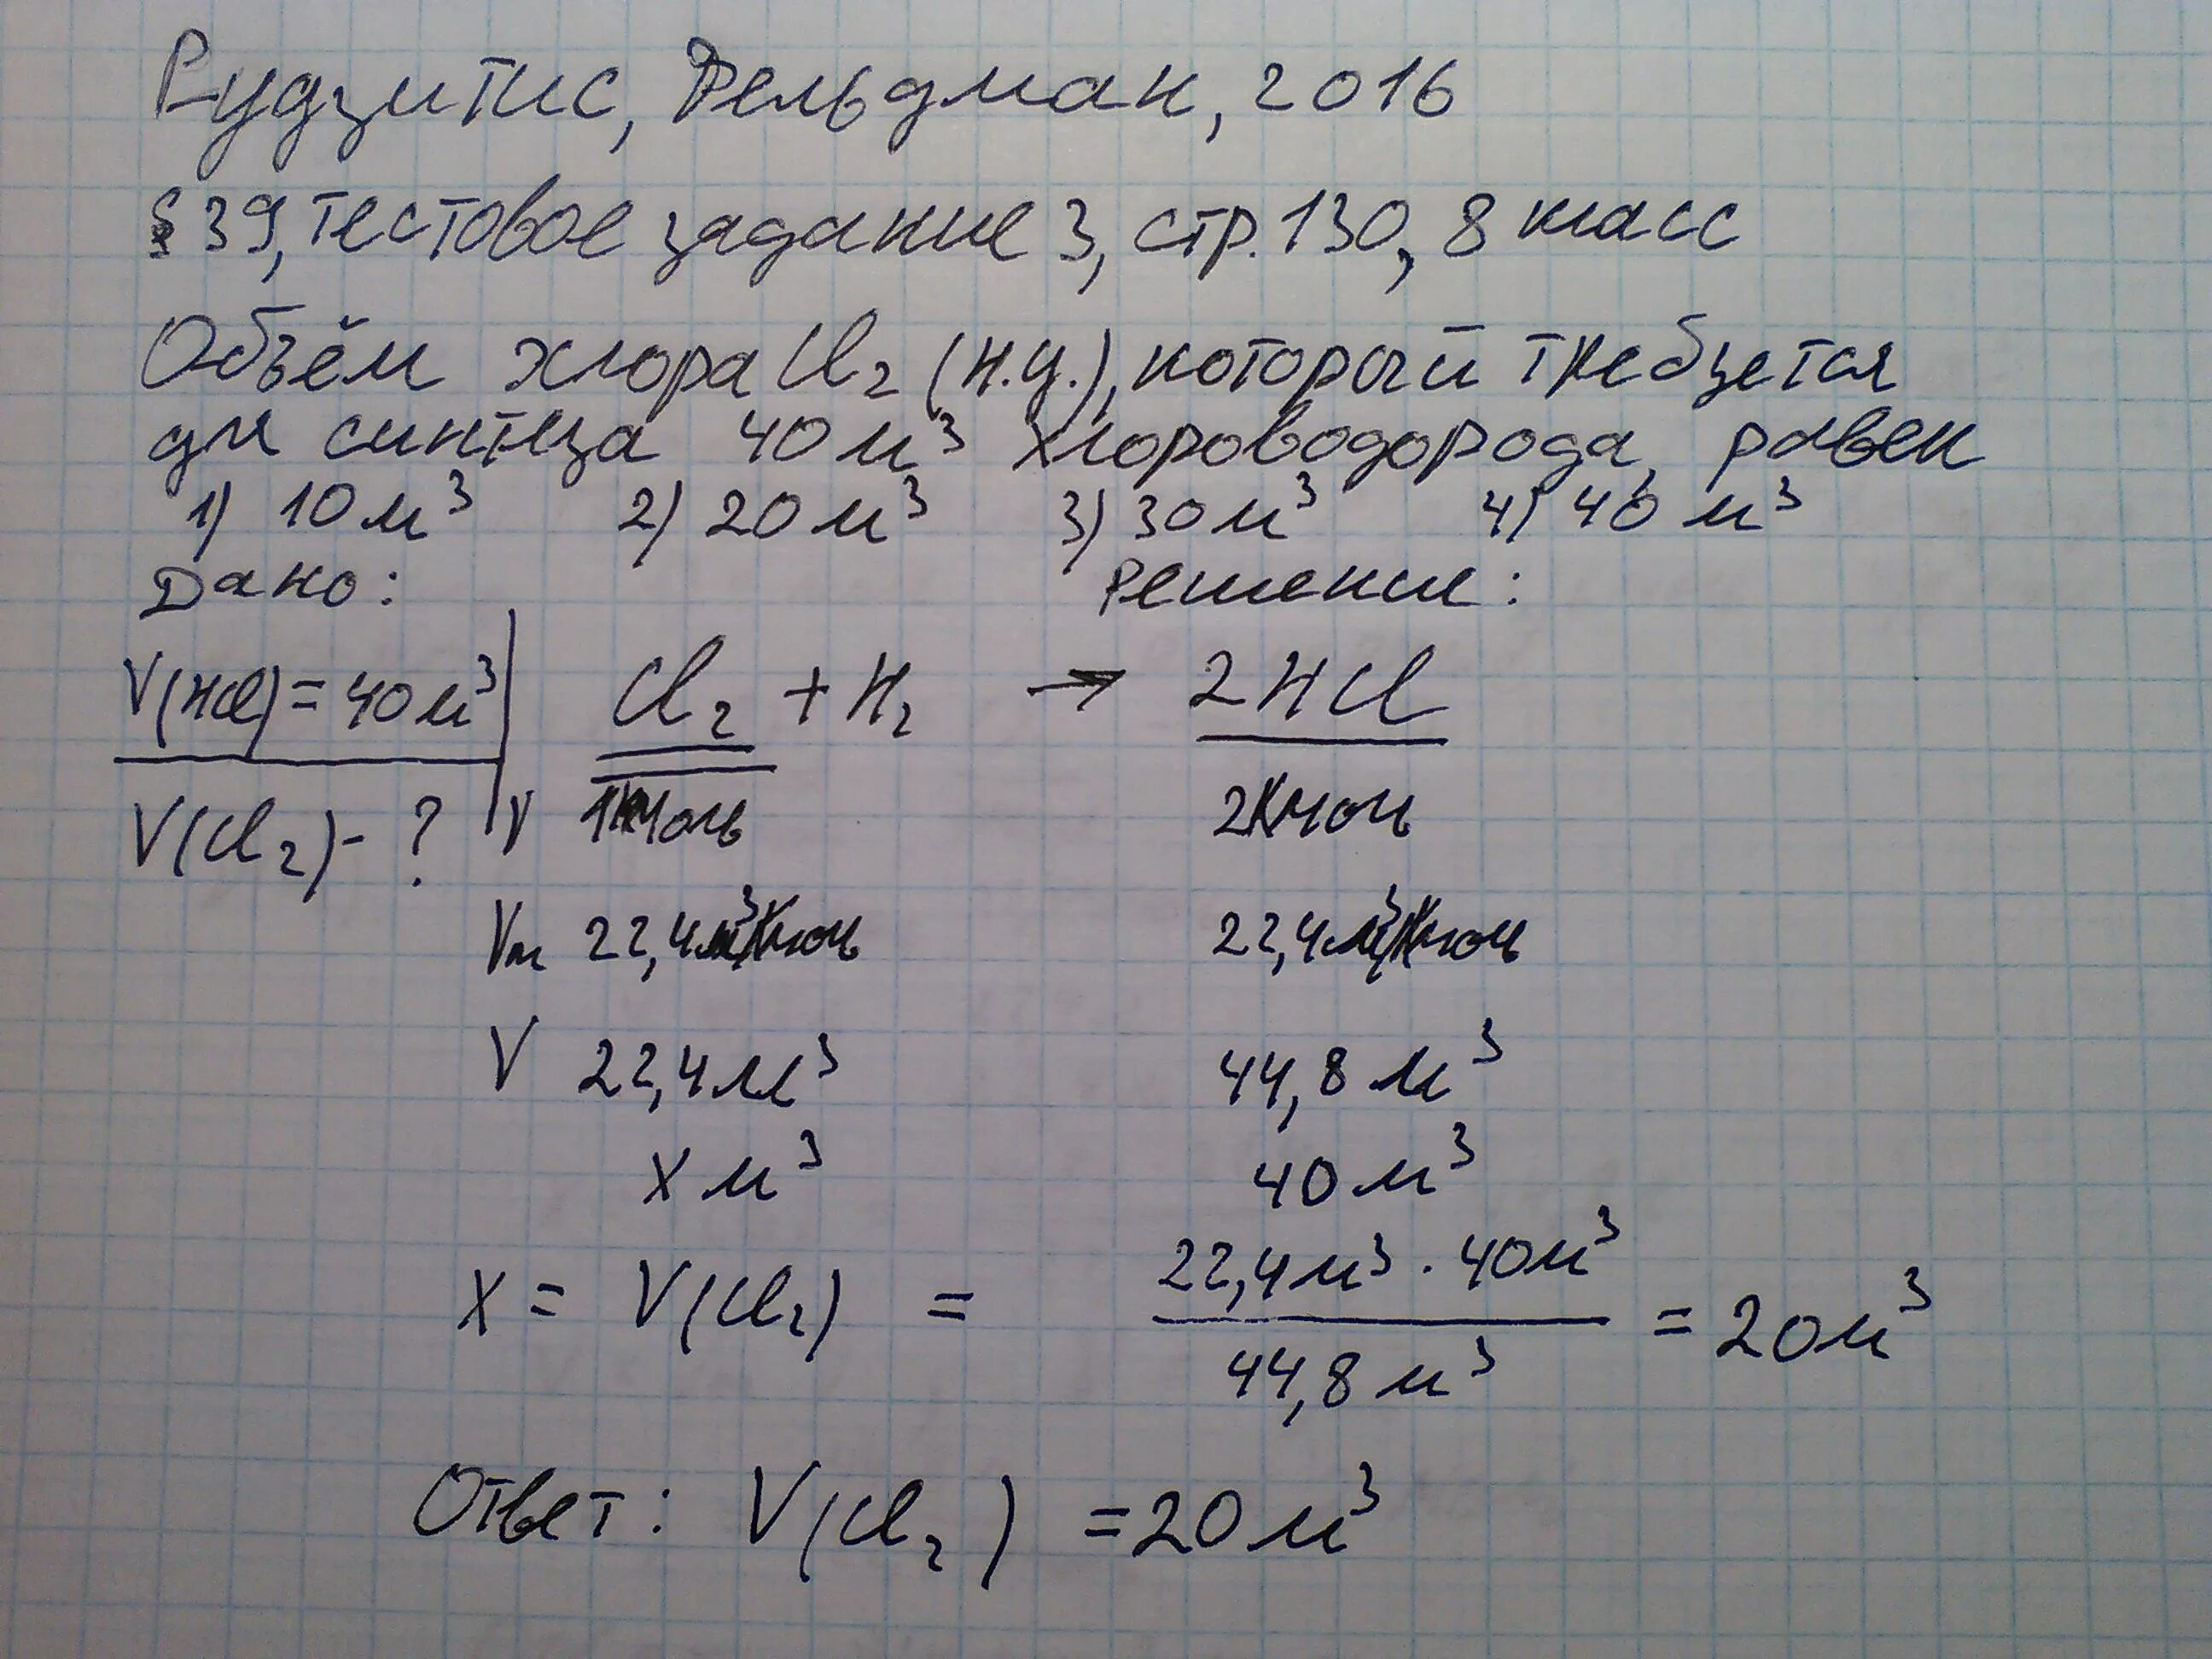 Рудзитис, Фельдман, 2016
§ 39, тестовое задание 3, стр. 130, 8 класс
Объём хлора Cl₂ (н.у.), который требуется
для синтеза 40 м³ хлороводорода, равен
1) 10 м³ 2) 20 м³ 3) 30 м³ 4) 40 м³
Дано: Решение:
V(HCl) = 40 м³ Cl₂ + H₂ → 2HCl
V(Cl₂) - ? ν 1кмоль 2кмоль
Vm 22,4м³/кмоль 22,4м³/кмоль
V 22,4 м³ 44,8 м³
x м³ 40 м³
x = V(Cl₂) = 22,4 м³ · 40 м³ / 44,8 м³ = 20 м³
Ответ: V(Cl₂) = 20 м³